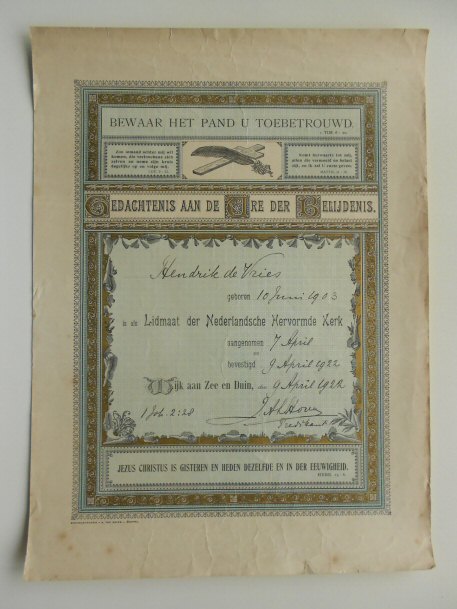 BEWAAR HET PAND U TOEBETROUWD.
1 TIM 6 : 20.
Zoo iemand achter mij wil
komen, die verloochene zich
zelven en neme zijn kruis
dagelijks op en volge mij.
LUC. 9 : 23.
Komt herwaarts tot mij,
allen die vermoeid en belast
zijt, en ik zal u ruste geven.
MATTH. 11 : 28.
GEDACHTENIS AAN DE URE DER BELIJDENIS.
Hendrik de Vries
geboren 10 Juni 1903
is als Lidmaat der Nederlandsche Hervormde Kerk
aangenomen 7 April
en
bevestigd 9 April 1922
Wijk aan Zee en Duin, den 9 April 1922
1 Joh. 2:28
Predikant
JEZUS CHRISTUS IS GISTEREN EN HEDEN DEZELFDE EN IN DER EEUWIGHEID.